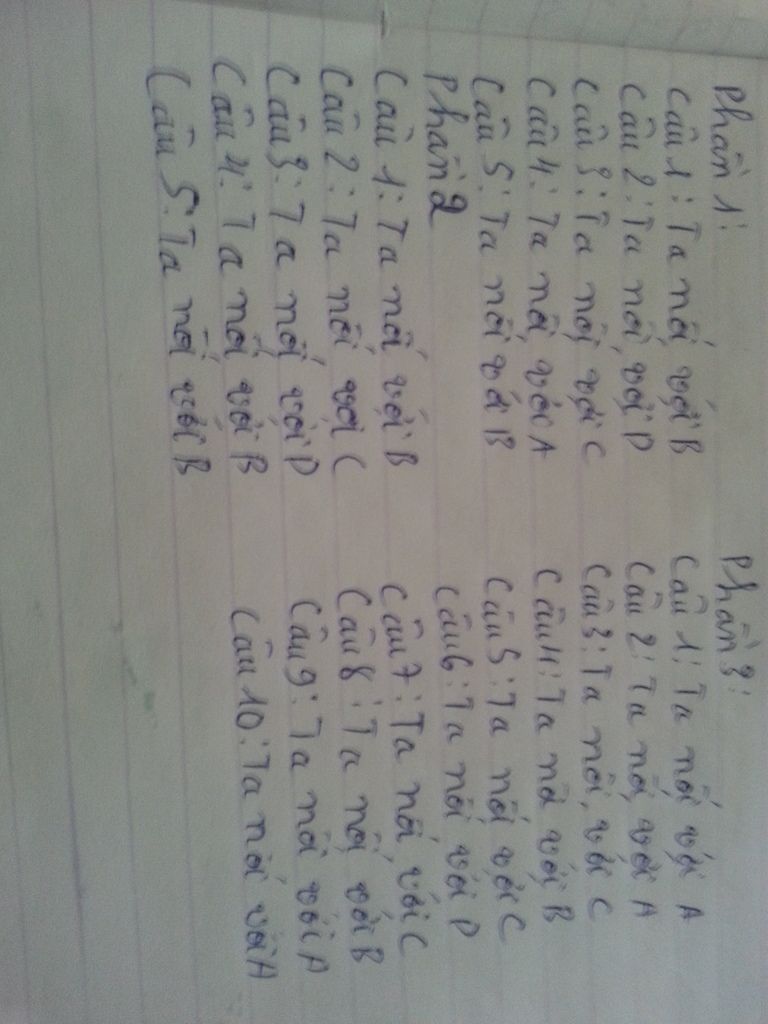 Phần 1:
Câu 1: Ta nối với B
Câu 2: Ta nối với D
Câu 3: Ta nối với C
Câu 4: Ta nối với A
Câu 5: Ta nối với B
Phần 2
Câu 1: Ta nối với B
Câu 2: Ta nối với C
Câu 3: Ta nối với D
Câu 4: Ta nối với B
Câu 5: Ta nối với B
Phần 3:
Câu 1: Ta nối với A
Câu 2: Ta nối với A
Câu 3: Ta nối với C
Câu 4: Ta nối với B
Câu 5: Ta nối với C
Câu 6: Ta nối với D
Câu 7: Ta nối với C
Câu 8: Ta nối với B
Câu 9: Ta nối với A
Câu 10: Ta nối với A